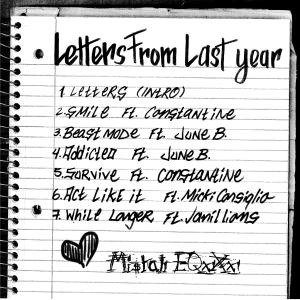 Letters From Last year
1. Letters (Intro)
2. Smile Ft. Constantine
3. Beast mode Ft. June B.
4. Addicted Ft. June B.
5. Survive Ft. Constantine
6. Act Like it Ft. Micki Consiglio
7. While Longer Ft. Jamillians